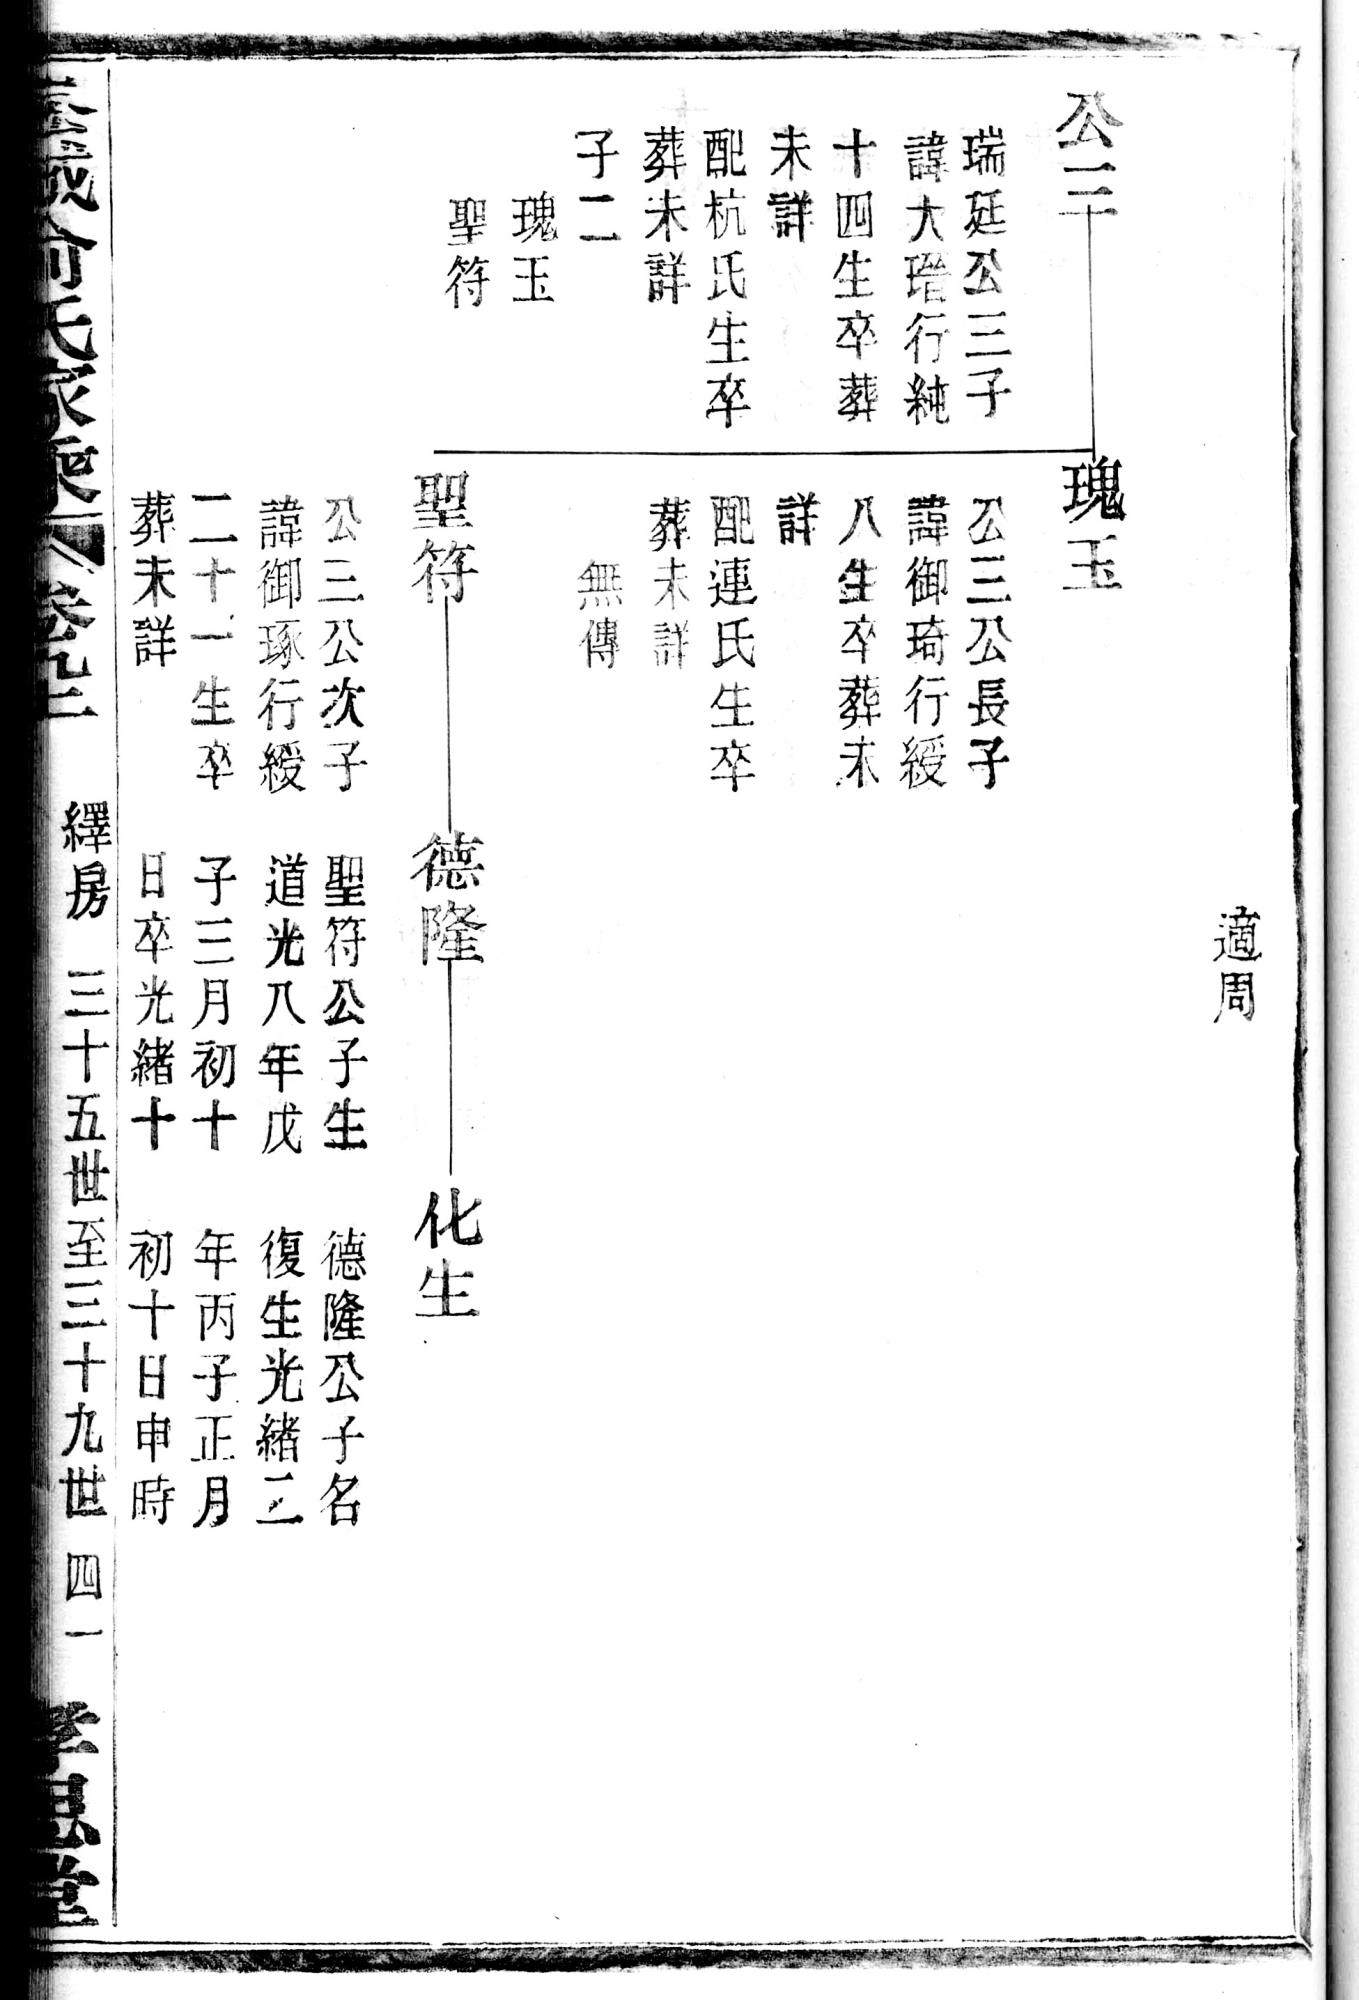 適周
公三
瑞廷公三子
諱大瑎行純
十四生卒葬
未詳
配杭氏生卒
葬未詳
子二
瑰玉
聖符
瑰玉
公三公長子
諱御琦行綬
八生卒葬未
詳
配連氏生卒
葬未詳
無傳
聖符
公三公次子
諱御琢行綬
二十一生卒
葬未詳
德隆
聖符公子生
道光八年戊
子三月初十
日卒光緒十
化生
德隆公子名
復生光緒二
年丙子正月
初十日申時
俞氏家乘
卷
繹房
三十五世至三十九世
四一
孝思堂